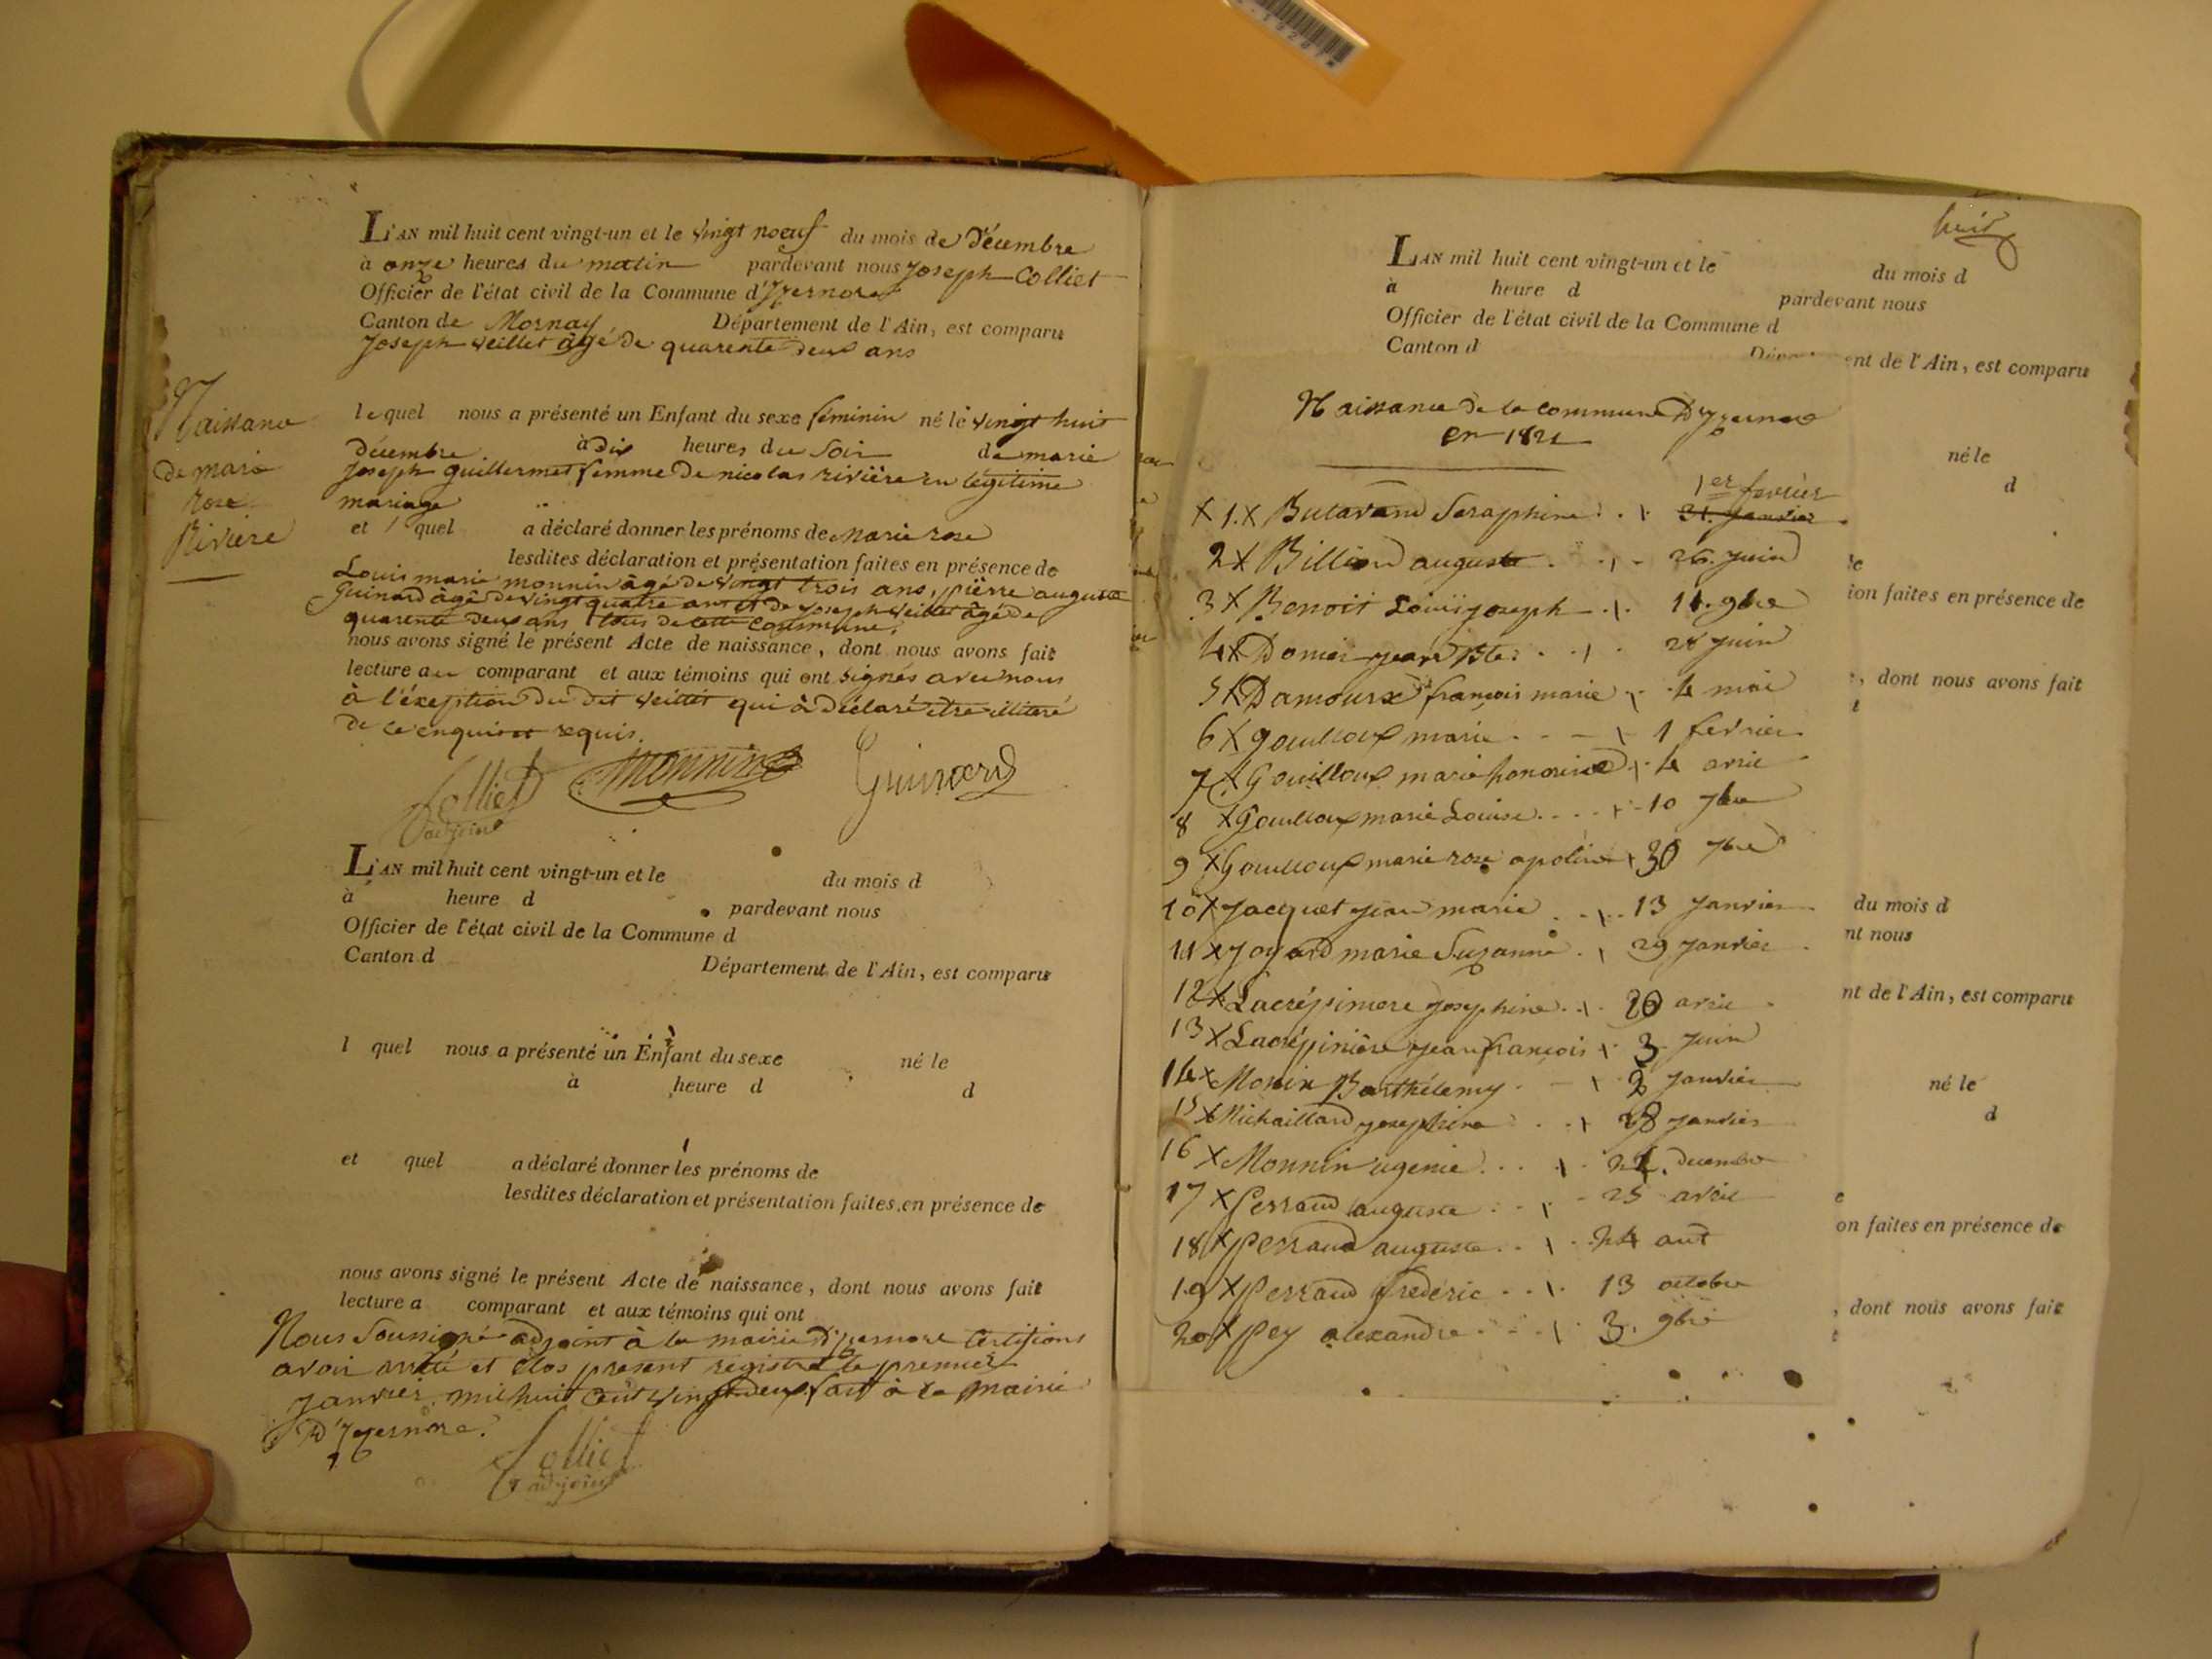 L'AN mil huit cent vingt-un et le vingt noeuf du mois de Décembre
à onze heures du matin pardevant nous Joseph Colliet
Officier de l'état civil de la Commune d'Yzernore
Canton de Mornay Département de l'Ain, est comparu
Joseph veillet âgé de quarente deux ans
Naissance
de marie
rose
Rivière
lequel nous a présenté un Enfant du sexe féminin né le vingt huit
décembre à dix heures du soir de marie
Joseph guillermet femme de nicolas rivière en légitime
mariage
et l quel a déclaré donner les prénoms de marie rose
lesdites déclaration et présentation faites en présence de
Louis marie monnin âgé de vingt trois ans, pierre auguste
Guinard âgé de vingt quatre ans et de Joseph veillet âgé de
quarente deux ans tous de cette commune,
nous avons signé le présent Acte de naissance, dont nous avons fait
lecture au comparant et aux témoins qui ont signés avec nous
à l'éxeption du dit veillet qui à déclaré être illitéré
de ce enquis et requis.
Colliet monnin Guinard
adjoint
L'AN mil huit cent vingt-un et le du mois d
à heure d pardevant nous
Officier de l'état civil de la Commune d
Canton d Département de l'Ain, est comparu
l quel nous a présenté un Enfant du sexe né le
à heure d d
et quel a déclaré donner les prénoms de
lesdites déclaration et présentation faites en présence de
nous avons signé le présent Acte de naissance, dont nous avons fait
lecture a comparant et aux témoins qui ont
Nous Soussigné adjoint à la mairie d'yzernore Certifions
avoir arrêté et clos present registre le premier
Janvier mil huit cent vingt deux fait à la Mairie
D'Yzernore.
Colliet
adjoint
huit
L'AN mil huit cent vingt-un et le du mois d
à heure d pardevant nous
Officier de l'état civil de la Commune d
Canton d ent de l'Ain, est comparu
Naissance de la commune D'yzernore
en 1821
né le
d
1er fevrier
X 1. X Butavand Seraphine 31. Janvier
2 X Billion auguste 26. Juin
3 X Benoit Louis joseph 11. 9bre
ion faites en présence de
4 X Domer jean Bte 28 Juin
5 X Damoure françois marie 4 mai
, dont nous avons fait
6 X gouilloux marie 1 fevrier
7 X Gouilloux marie honorine 4 avril
8 X gouilloux marie Louise 10 7bre
9 X Gouilloux marie rose apoline 30 7bre
10 X Jacquet jean marie 13 Janvier
du mois d
11 X Joyard marie Suzanne 29 Janvier
nt nous
12 X Lacrépiniere Josephine 20 avril
nt de l'Ain, est comparu
13 X Lacrépinière jean françois 3 Juin
14 X Monin Barthélemy 2 Janvier
né le
15 X Michaillard josephine 28 Janvier
d
16 X Monnin ugenie 21. Decembre
17 X Perraud auguste 25 avril
18 X Perraud auguste 24 aut
on faites en présence de
19 X Perraud frederic 13 octobre
20 X Pey alexandre 3. 9bre
, dont nous avons fait